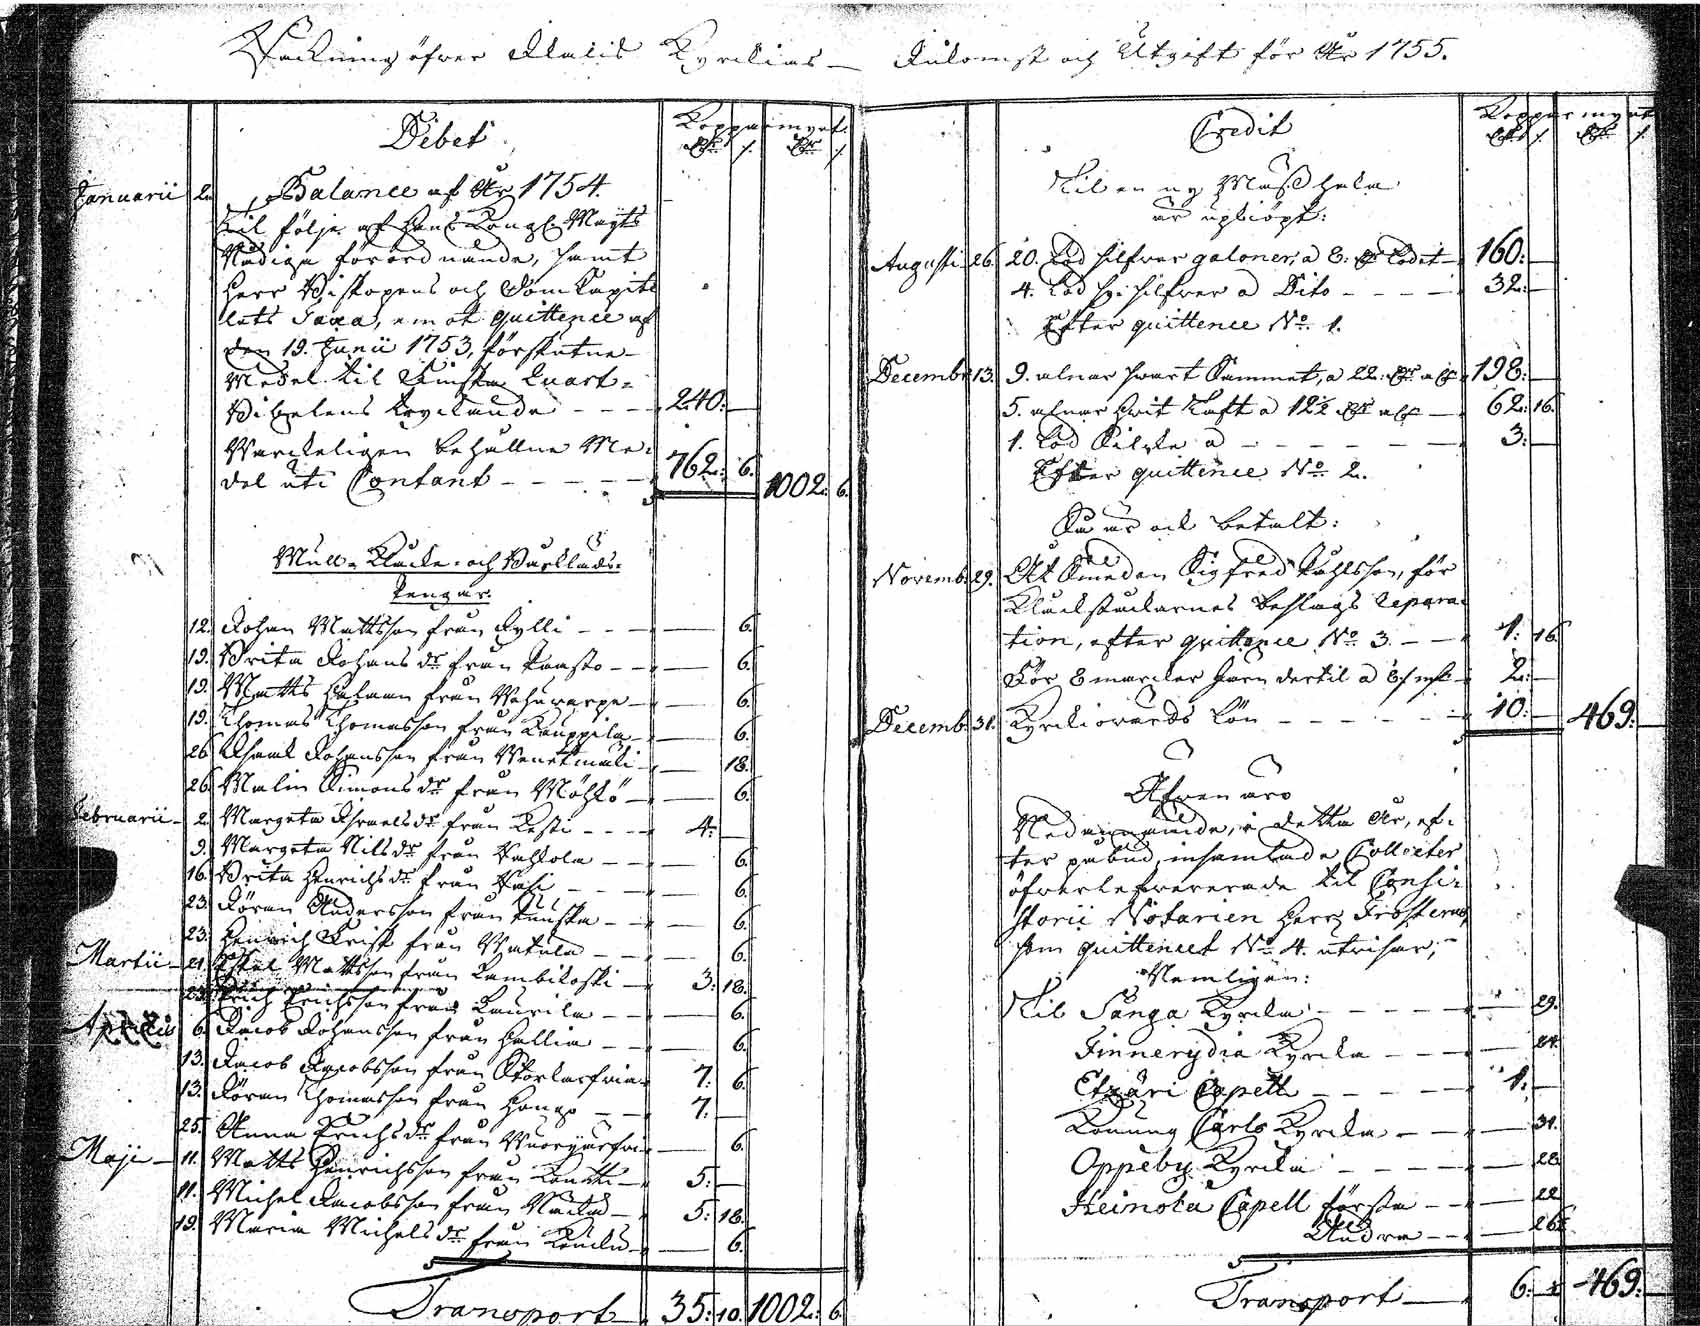 Räckning öfver Ulalis Kyrckias Inkomst och Utgift för År 1755.
Debet
Kopparmynt.
Januarii 2. Balance af År 1754.
Til följe af Hans Kongl. Mayts
Nådiga förordnande, samt
Herr Biskopens och DomKapit
lets Taxa, emot quittence af
den 19. Junii 1753, förskutne
Medel til Finska Quart-
Bibelens tryckande 240:
Värckeligen behållne Me-
del uti Contant 762: 6. 1002: 6.
Mull- Klocke- och Bårkläds-
Pengar.
12. Johan Mattsson från Jylli 6.
19. Brita Johans dr från Paasto 6.
19. Matts från 6.
19. Thomas Thomasson från Kauppila 6.
26. Johansson från 18.
26. Malin Simons dr från 6.
Februarii 2. Margeta Israels dr från Kesti 4:
9. Margeta Nils dr från 6.
16. Brita Henrichs dr från 6.
23. Jöran Andersson från 6.
23. Henrich från 6.
Martii 21. Mattsson från Lambikoski 3: 18.
23. Erich Erichsson från Laurila 6.
Aprilis 6. Jacob Johansson från Hallia 6.
13. Jacob Jacobsson från 7: 6.
13. Jöran Thomasson från 7:
25. Anna Erichs dr från 6.
Maji 11. Matts Henrichsson från 5:
11. Michel Jacobsson från 5: 18.
19. Maria Michels dr från 6.
Transport 35: 10. 1002: 6.
Credit
Kopparmynt
Til en ny Mässhaka
är upköpt:
Augusti 26. 20. Lod silfver galoner, a 8. Lodet 160:
4. Lod silfver a Dito 32:
Efter quittence No. 1.
Decemb. 13. 9. alnar swart Sammet, a 22: 198:
5. alnar hwit Taft a 12½ 62: 16.
1. Lod Silke a 3:
Efter quittence No. 2.
Så är ock betalt:
Novemb. 29. At Smeden Sigfred Påhlsson, för
Klockstockarnes beslags repara-
tion, efter quittence No. 3. 4: 16.
För 8 marcker Jern dertil a 2:
Decemb. 31. Kyrkiovärds Lön 10: 469:
Äfven äro
Nedannämde, i detta År, ef-
ter påbud, insamlade Collecter
öfverlefvererade til Consi-
storii Notarien Herr Frosterus
som quittencet No. 4. utvisar,
Nemligen:
Til Sånga Kyrcka 29.
Finnerydia Kyrcka 24.
Etzäri Capell 1:
Konung Carls Kyrcka 31.
Oppeby Kyrcka 28.
Heinola Capell första 22.
Andra 26.
Transport 6: 469: